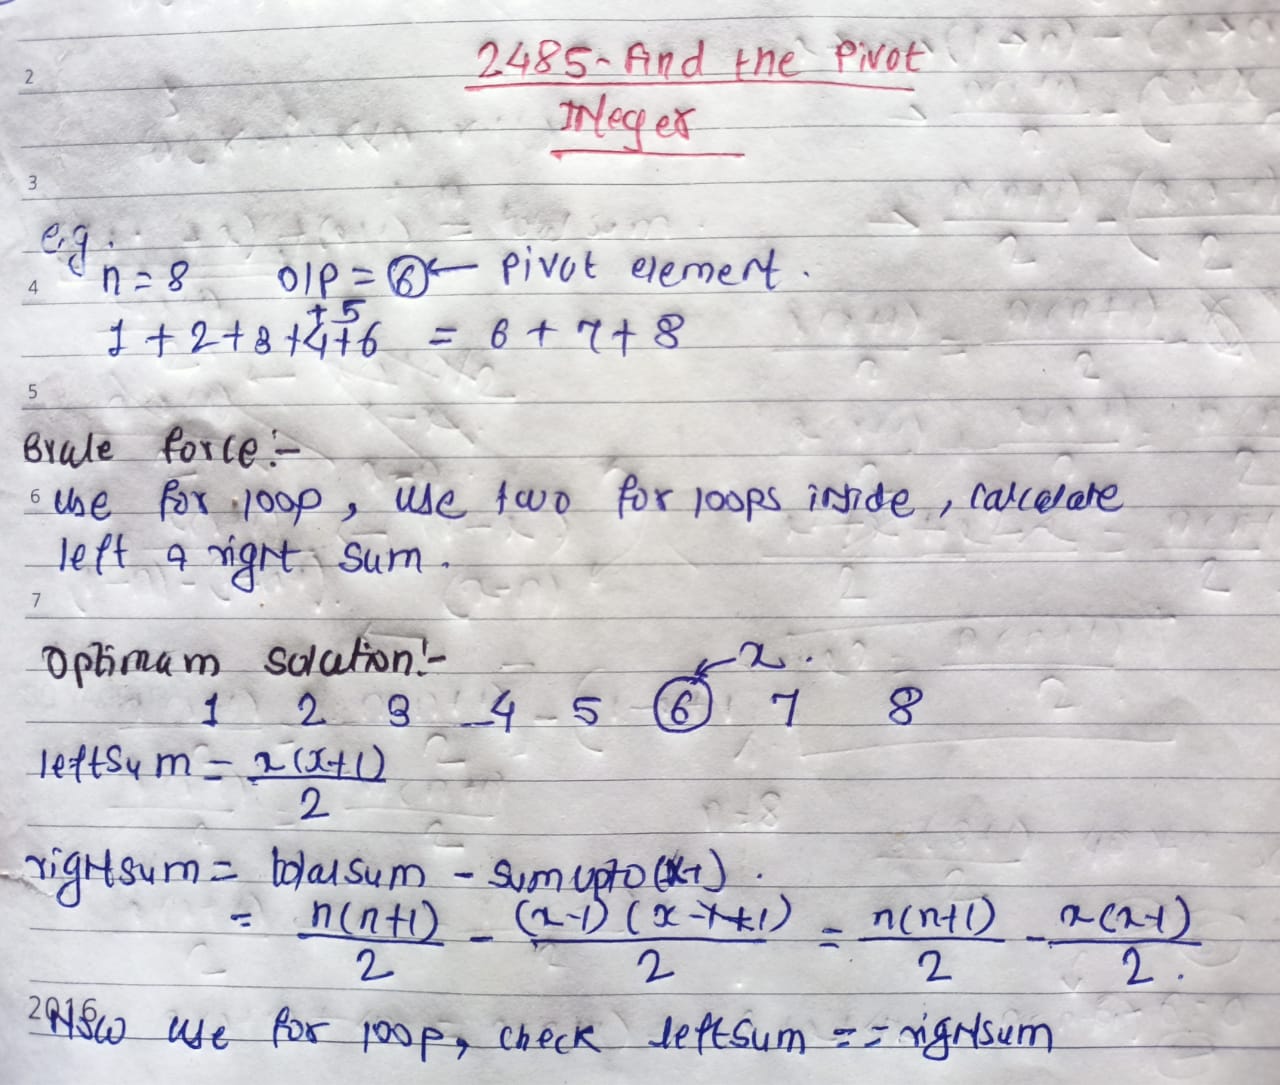 2485-Find the Pivot
Integer
2
3
e.g.
4 n = 8 O/P = 6 ← Pivot element.
+ 5
1 + 2 + 3 + 4 + 6 = 6 + 7 + 8
5
Brute force:-
6 Use for loop, use two for loops inside, calculate
left & right sum.
7
Optimum solution:-
x.
1 2 3 4 5 6 7 8
leftSum = x(x+1)
2
rightsum = totalsum - sum upto (x-1).
= n(n+1) - (x-1)(x-1+1) = n(n+1) - x(x-1)
2 2 2 2.
2016
Now use for loop, check leftSum == rightsum